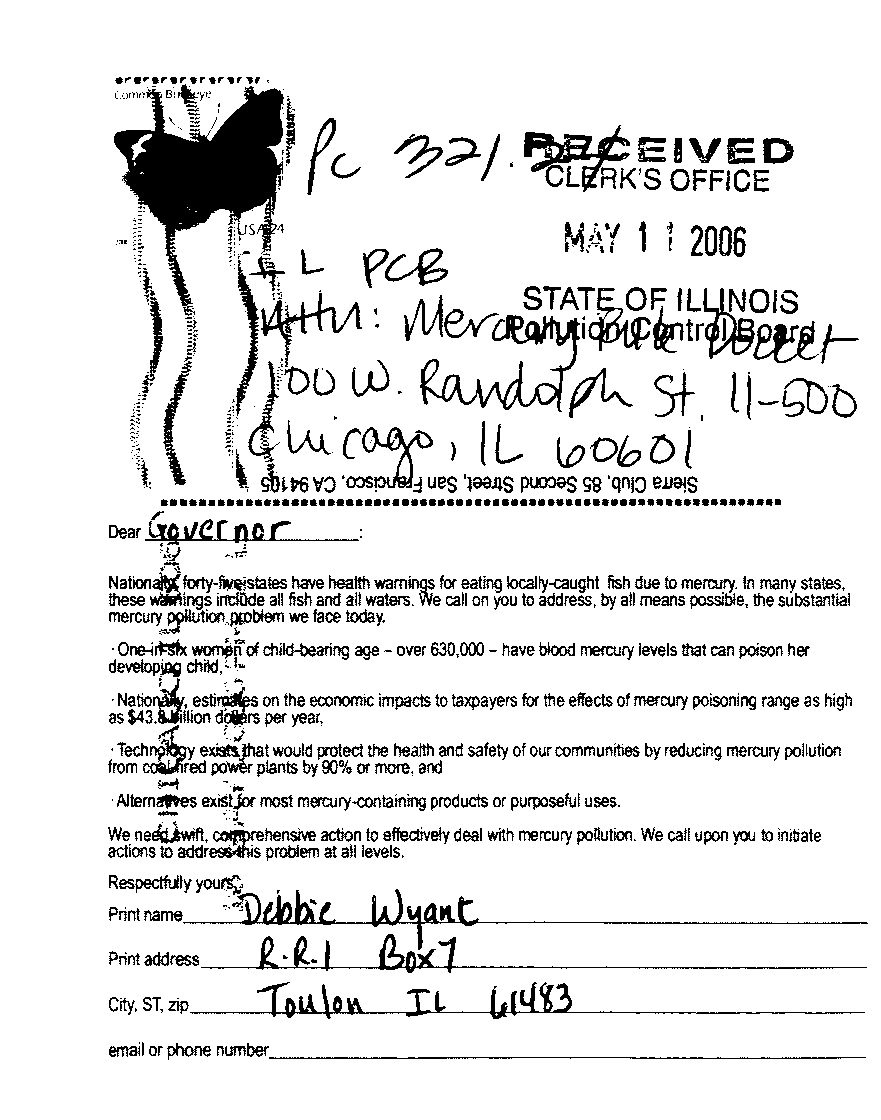 Common Buckeye
USA 24
PC 321.
RECEIVED
CLERK'S OFFICE
MAY 11 2006
STATE OF ILLINOIS
Pollution Control Board
IL PCB
Attn: Mercury Rule Docket
100 W. Randolph St. 11-500
Chicago, IL 60601
Sierra Club, 85 Second Street, San Francisco, CA 94105
Dear Governor :
Nationally, forty-five states have health warnings for eating locally-caught fish due to mercury. In many states,
these warnings include all fish and all waters. We call on you to address, by all means possible, the substantial
mercury pollution problem we face today.
· One-in-six women of child-bearing age – over 630,000 – have blood mercury levels that can poison her
developing child,
· Nationally, estimates on the economic impacts to taxpayers for the effects of mercury poisoning range as high
as $43.8 billion dollars per year,
· Technology exists that would protect the health and safety of our communities by reducing mercury pollution
from coal-fired power plants by 90% or more, and
· Alternatives exist for most mercury-containing products or purposeful uses.
We need swift, comprehensive action to effectively deal with mercury pollution. We call upon you to initiate
actions to address this problem at all levels.
Respectfully yours,
Print name Debbie Wyant
Print address R.R.1 Box 7
City, ST, zip Toulon IL 61483
email or phone number